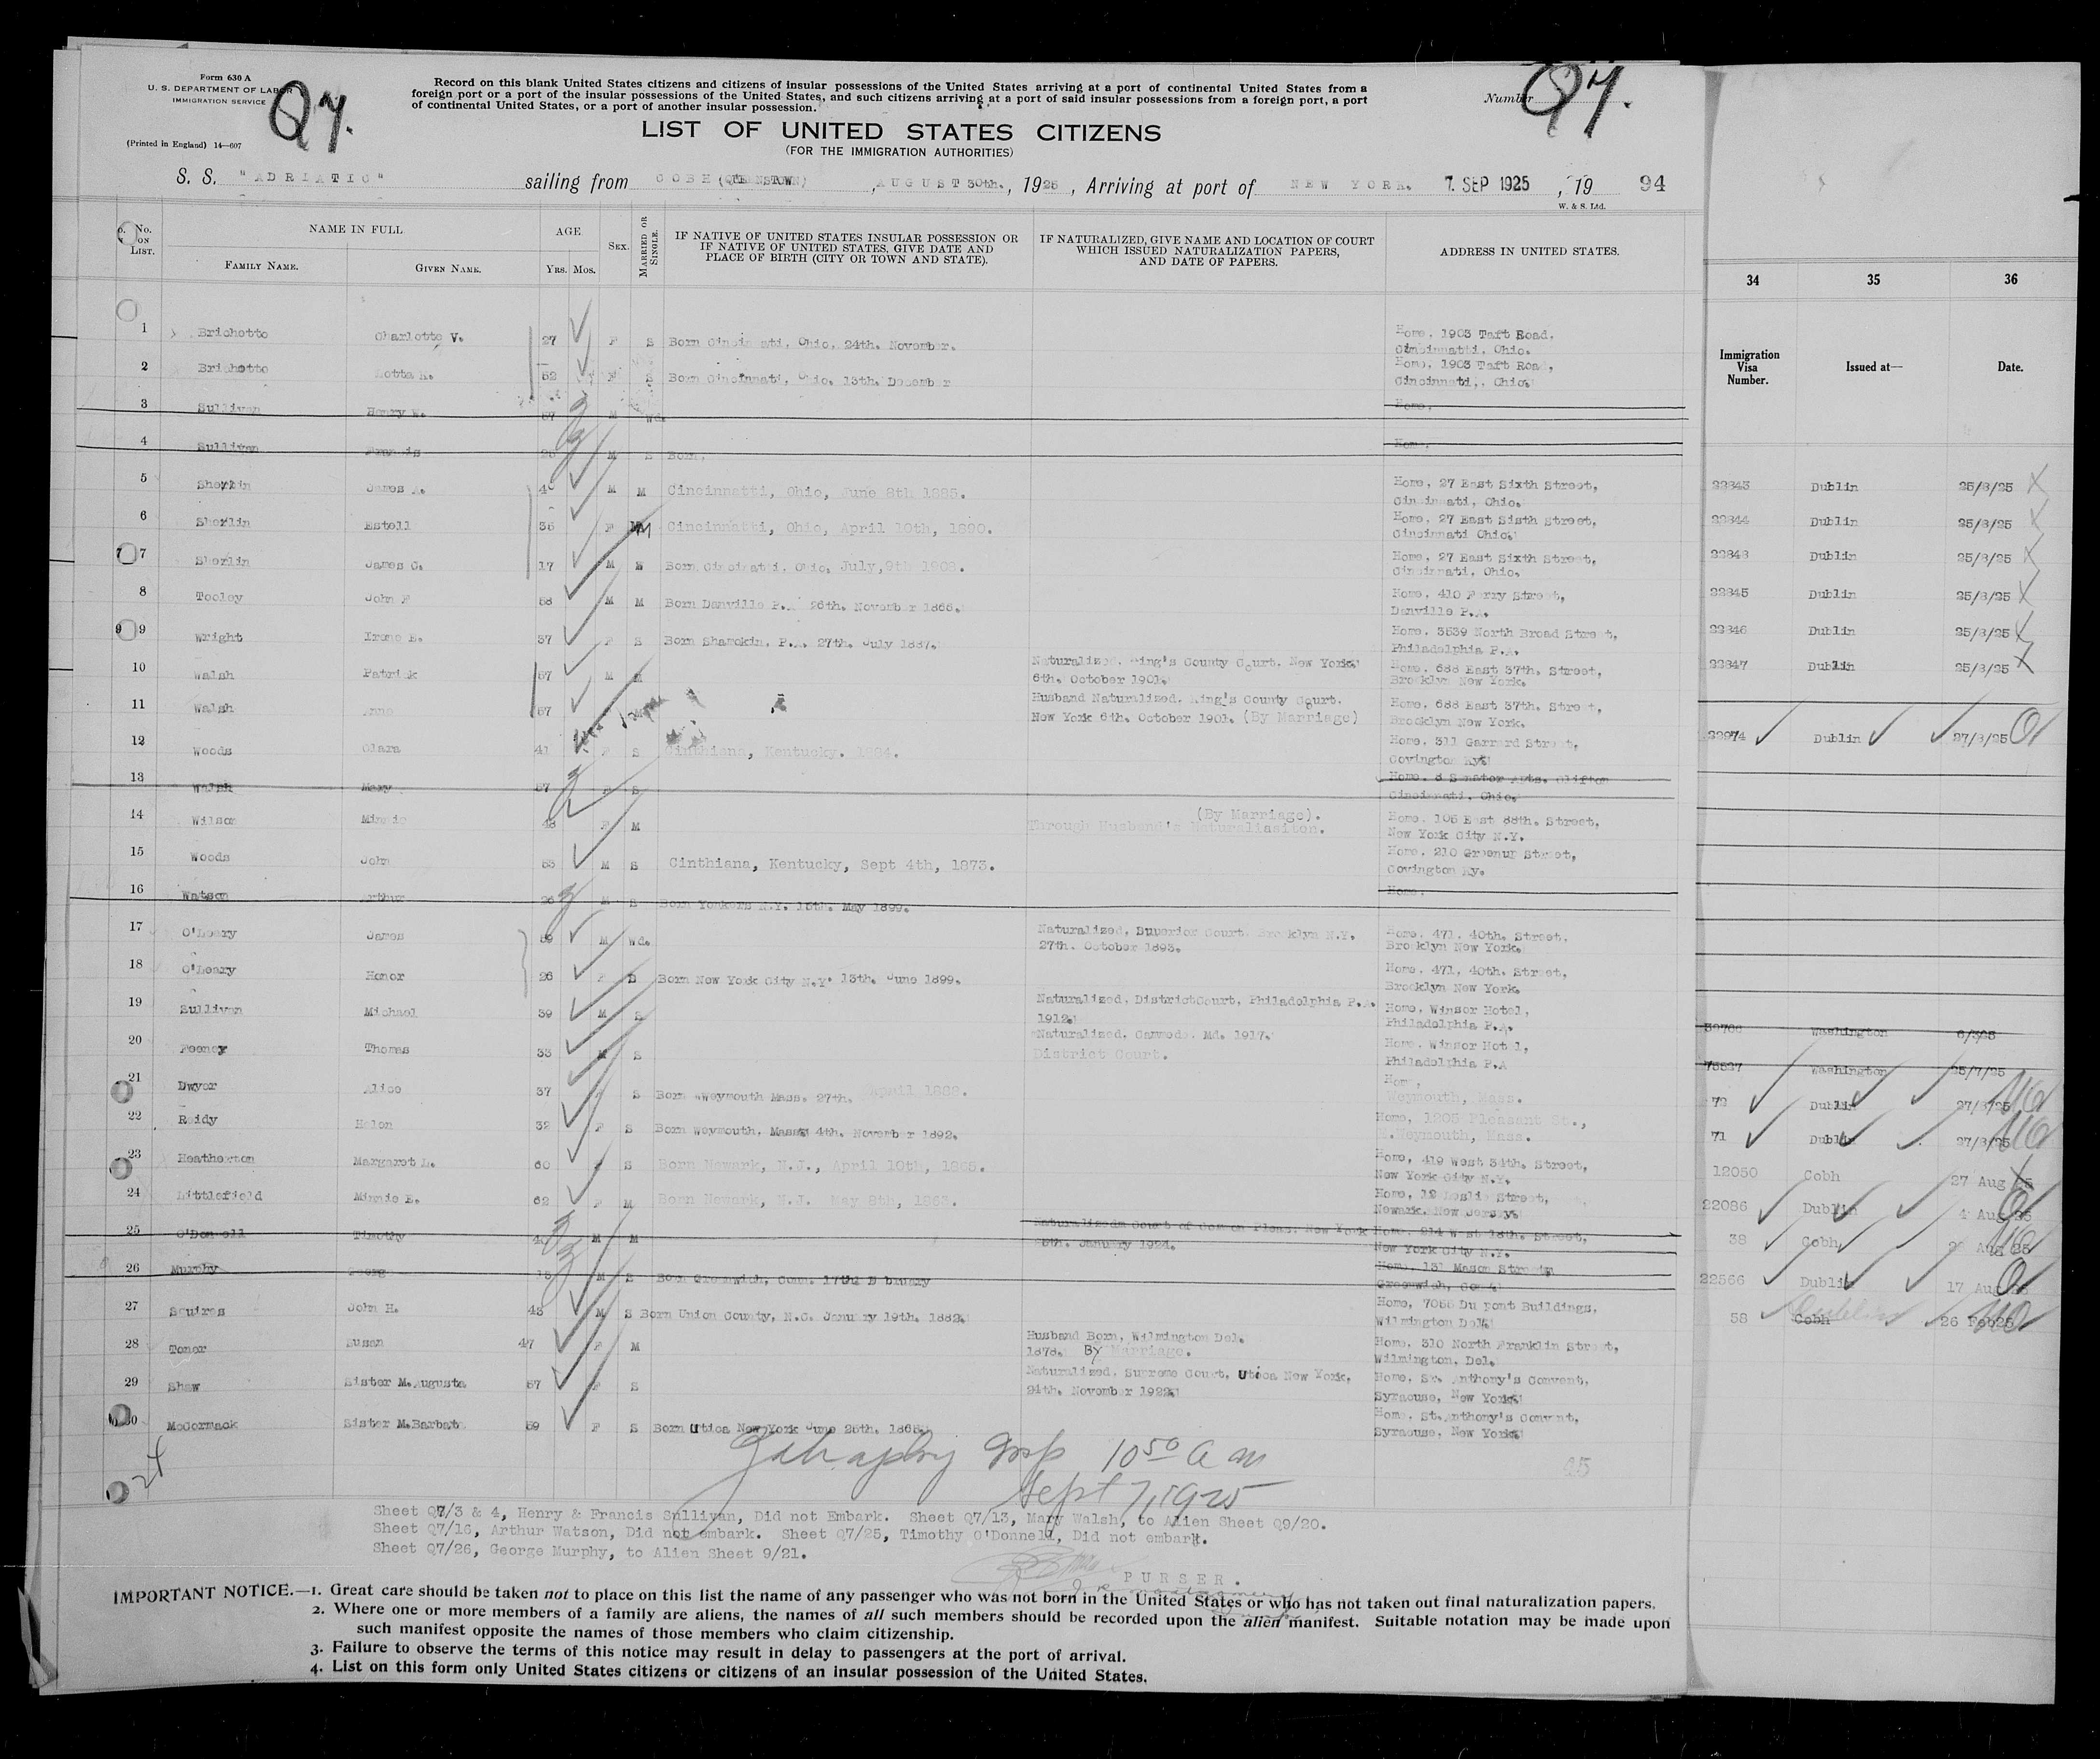 Form 630 A
U. S. DEPARTMENT OF LABOR
IMMIGRATION SERVICE
(Printed in England) 14—607
Q7.
Record on this blank United States citizens and citizens of insular possessions of the United States arriving at a port of continental United States from a
foreign port or a port of the insular possessions of the United States, and such citizens arriving at a port of said insular possessions from a foreign port, a port
of continental United States, or a port of another insular possession.
Number Q7.
LIST OF UNITED STATES CITIZENS
(FOR THE IMMIGRATION AUTHORITIES)
S. S. "ADRIATIC" sailing from COBH (QUEENSTOWN), AUGUST 30th., 1925, Arriving at port of NEW YORK. 7. SEP 1925, 19 94
W. & S. Ltd.
No. ON LIST.
NAME IN FULL
FAMILY NAME.
GIVEN NAME.
AGE
YRS. MOS.
SEX.
MARRIED OR SINGLE.
IF NATIVE OF UNITED STATES INSULAR POSSESSION OR
IF NATIVE OF UNITED STATES, GIVE DATE AND
PLACE OF BIRTH (CITY OR TOWN AND STATE).
IF NATURALIZED, GIVE NAME AND LOCATION OF COURT
WHICH ISSUED NATURALIZATION PAPERS,
AND DATE OF PAPERS.
ADDRESS IN UNITED STATES.
34 35 36
Immigration Visa Number.
Issued at—
Date.
1 Brichetto Charlotte V. 27 F S Born Cincinnati, Ohio, 24th. November. Home, 1903 Taft Road,
Cincinnatti, Ohio.
2 Brichetto 52 F S Born Cincinnati, Ohio. 13th. December Home, 1903 Taft Road,
Cincinnati,. Ohio.
3 Sullivan Henry W. 57 M Wd. Home,
4 Sullivan Francis M S Born, Home,
5 Sherlin James A. 40 M M Cincinnatti, Ohio, June 8th 1885. Home, 27 East Sixth Street,
Cincinnati, Ohio.
6 Sherlin Estell 35 F M Cincinnatti, Ohio, April 10th, 1890. Home, 27 East Sisth Street,
Cincinnati Ohio.
7 Sherlin James C. 17 M Born Cincinatti, Ohio, July, 9th 1908. Home, 27 East Sixth Street,
Cincinnati, Ohio.
8 Tooley John F 58 M M Born Danville P.A. 26th. November 1866. Home, 410 Ferry Street,
Danville P.A.
9 Wright Irene E. 37 F S Born Shamokin, P.A. 27th. July 1887. Home. 3539 North Broad Street,
Philadelphia P.A.
10 Walsh Patrick 57 M M Naturalized, King's County Court, New York,
6th. October 1901. Home. 688 East 37th. Street,
Brooklyn New York.
11 Walsh Anne 57 Husband Naturalized, King's County Court.
New York 6th. October 1901. (By Marriage) Home, 688 East 37th. Street,
Brooklyn New York.
12 Woods Clara 41 F S Cinthiana, Kentucky. 1884. Home. 311 Garrard Street,
Covington Ky.
13 Walsh Mary 57 F S Home. 8 Senator Apts. Clifton
Cincinnati. Ohio.
14 Wilson Minnie 48 F M (By Marriage).
Through Husband's Naturaliasiton. Home. 106 East 88th. Street,
New York City N.Y.
15 Woods John 53 M S Cinthiana, Kentucky, Sept 4th, 1873. Home. 210 Greenur Street,
Covington Ky.
16 Watson Arthur 26 M S Born Yonkers N.Y. 15th. May 1899. Home.
17 O'Leary James 59 M Wd. Naturalized, Superior Court Brooklyn N.Y.
27th. October 1893. Home. 471. 40th. Street,
Brooklyn New York.
18 O'Leary Honor 26 F S Born New York City N.Y. 13th. June 1899. Home. 471, 40th. Street,
Brooklyn New York.
19 Sullivan Michael 39 M S Naturalized, DistrictCourt, Philadelphia P.A.
1912. Home, Winsor Hotel,
Philadelphia P.A.
20 Feeney Thomas 33 M S Naturalized. Md. 1917.
District Court. Home. Winsor Hotel,
Philadelphia P.A
21 Dwyer Alice 37 F S Born Weymouth Mass. 27th. April 1888. Home,
Weymouth, Mass.
22 Reidy Helen 32 F S Born Weymouth, Mass 4th. November 1892. Home, 1205 Pleasant St.,
E.Weymouth, Mass.
23 Heatherton Margaret L. 60 F S Born Newark, N.J., April 10th, 1865. Home, 419 West 34th. Street,
New York City N.Y.
24 Littlefield Minnie E. 62 F M Born Newark, N.J. May 8th, 1863. Home, 12 Leslie Street,
Newark. New Jersey.
25 O'Donnell Timothy M M Naturalized Court of Common Pleas. New York
January 1924. Home. 214 West 18th. Street,
New York City N.Y.
26 Murphy George M S Born Greenwich, Conn. 17th February Home. 131 Mason Street,
Greenwich, Conn.
27 Squires John H. 43 M S Born Union County, N.C. January 19th. 1882. Home, 7056 Du pont Buildings,
Wilmington Del.
28 Toner Susan 47 F M Husband Born, Wilmington Del.
1878. BY Marriage. Home, 310 North Franklin Street,
Wilmington, Del.
29 Shaw Sister M.Augusta 57 F S Naturalized, Supreme Court, Utica New York,
24th. November 1922. Home, St. Anthony's Convent,
Syracuse, New York.
30 McCormack Sister M.Barbat 59 F S Born Utica New York June 25th. 1866. Home, St. Anthony's Convent,
Syracuse, New York.
22343 Dublin 25/8/25
22344 Dublin 25/8/25
22348 Dublin 25/8/25
22345 Dublin 25/8/25
22346 Dublin 25/8/25
22347 Dublin 25/8/25
22974 Dublin 27/8/25
Washington
Washington 25/7/25
72 Dublin 27/8/25
71 Dublin 27/8/25
12050 Cobh 27 Aug 25
22086 Dublin 4 Aug 25
38 Cobh Aug 25
22566 Dublin 17 Aug 25
58 Cobh Dublin 26 Feb25
24
10 50 A m
Sept 7, 1925
45
Sheet Q7/3 & 4, Henry & Francis Sullivan, Did not Embark. Sheet Q7/13, Mary Walsh, to Alien Sheet Q9/20.
Sheet Q7/16, Arthur Watson, Did not embark. Sheet Q7/25, Timothy O'Donnell, Did not embark.
Sheet Q7/26, George Murphy, to Alien Sheet 9/21.
PURSER.
IMPORTANT NOTICE.—1. Great care should be taken not to place on this list the name of any passenger who was not born in the United States or who has not taken out final naturalization papers.
2. Where one or more members of a family are aliens, the names of all such members should be recorded upon the alien manifest. Suitable notation may be made upon
such manifest opposite the names of those members who claim citizenship.
3. Failure to observe the terms of this notice may result in delay to passengers at the port of arrival.
4. List on this form only United States citizens or citizens of an insular possession of the United States.